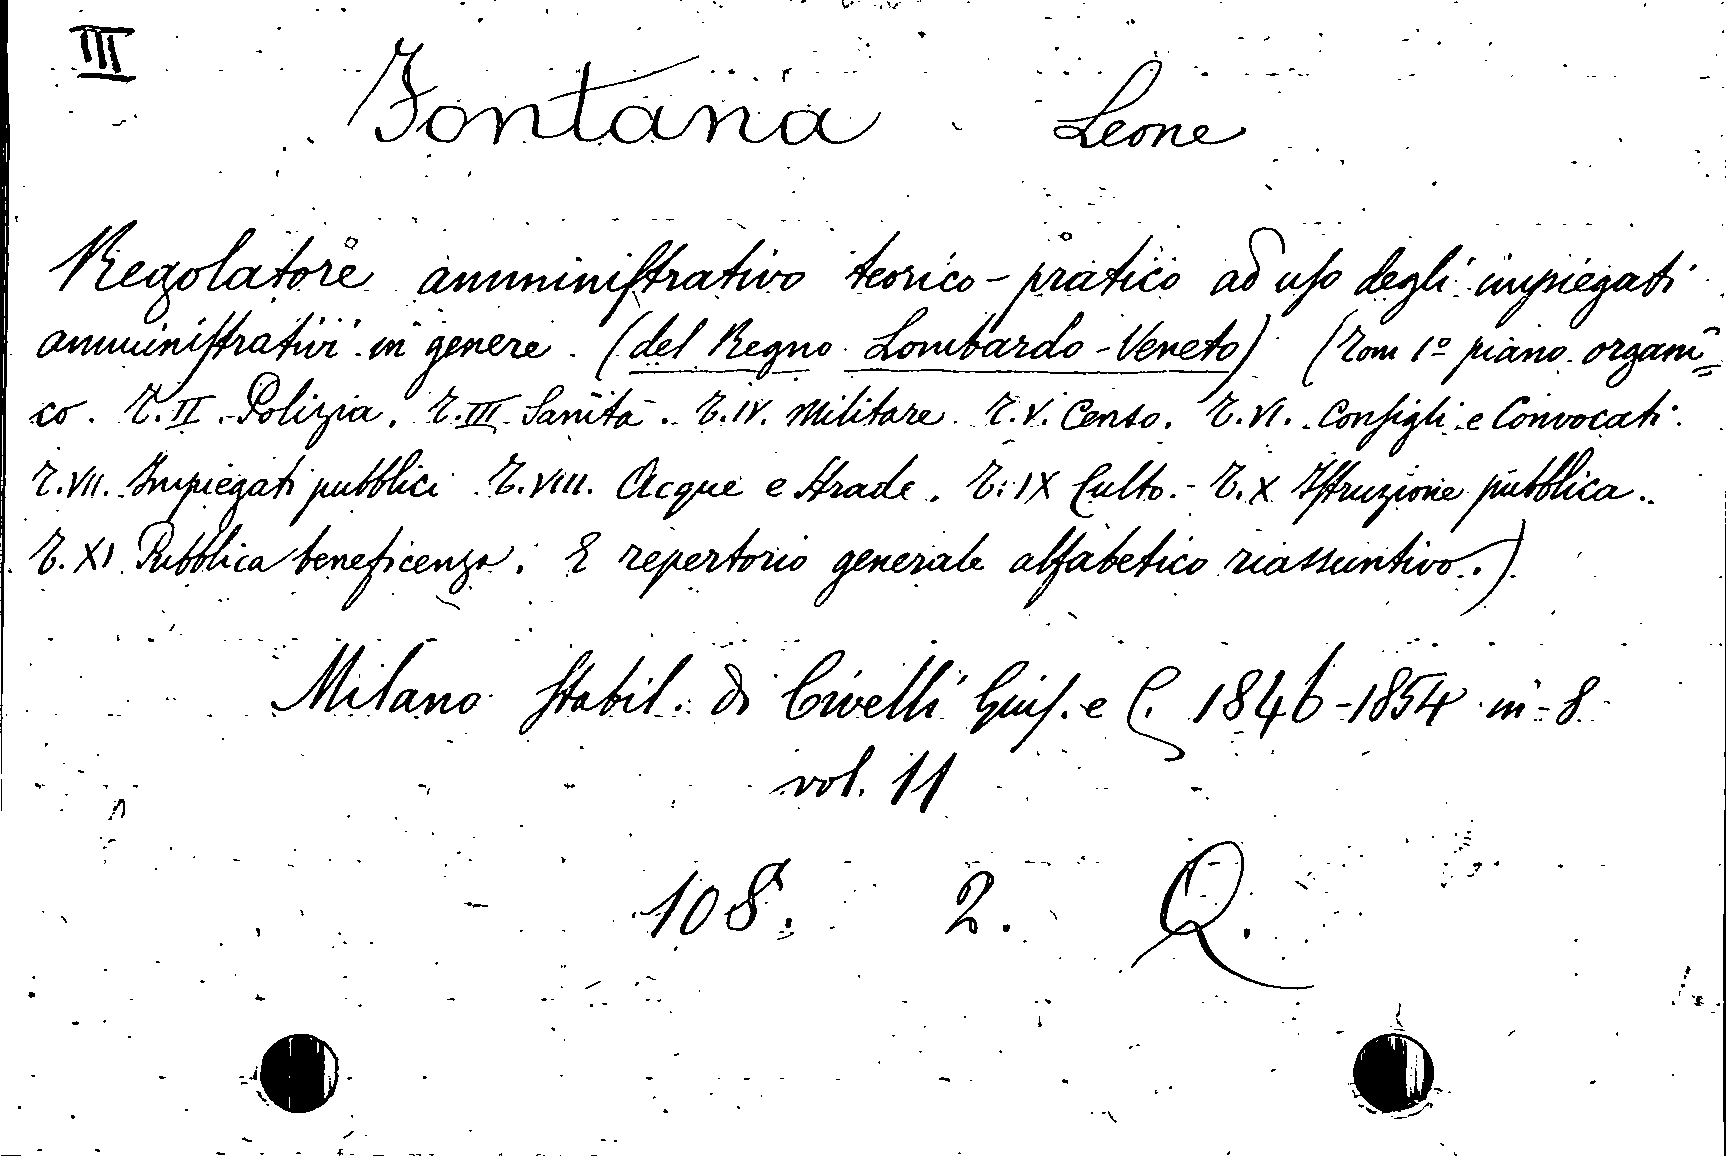 III
Fontana Leone
Regolatore amministrativo teorico-pratico ad uso degli impiegati
amministrativi in genere. (del Regno Lombardo-Veneto) (Tom 1º piano organi=
co. T. II Polizia. T. III Sanità. T. IV. Militare. T. V. Censo. T. VI. Consigli e Convocati.
T. VII. Impiegati pubblici T. VIII. Acque e Strade. T. IX Culto. - T. X Istruzione pubblica.
T. XI Pubblica beneficenza. E repertorio generale alfabetico riassuntivo.)
Milano Stabil. di Civelli Gius. e C. 1846-1854 in-8
vol. 11
108. 2. Q.